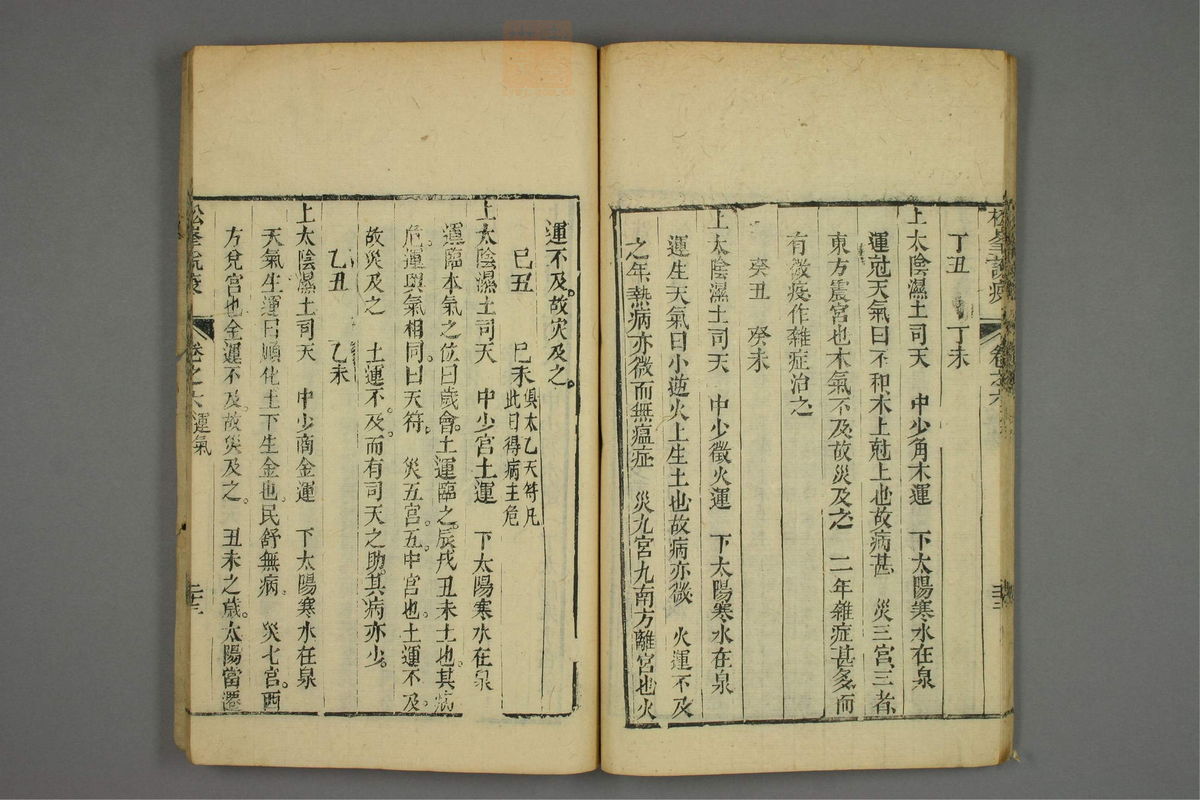 丁丑　丁未
上太陰濕土司天　中少角木運　下太陽寒水在泉
運尅天氣曰不和木上尅上也故病甚　災三宮三者
東方震宮也木氣不及故災及之　二年雜症甚多而
有微疫作雜症治之
癸丑　癸未
上太陰濕土司天　中少徵火運　下太陽寒水在泉
運生天氣曰小逆火上生土也故病亦微　火運不及
之年熱病亦微而無瘟症　災九宮九南方離宮也火
運不及故灾及之。
己丑　己未 俱太乙天符凡
此日得病主危
上太陰濕土司天　中少宮土運　下太陽寒水在泉
運臨本氣之位曰歲會。土運臨之。辰戌丑未土也。其病
危。運與氣相同。曰天符。　災五宮。五中宮也。土運不及。
故災及之　土運不及。而有司天之助。其病亦少。
乙丑　乙未
上太陰濕土司天　中少商金運　下太陽寒水在泉
天氣生運曰順化土下生金也。民舒無病。　災七宮。西
方兌宮也金運不及。故災及之。　丑未之歲。太陽當遷
松峯說疫　卷之六 運氣　二十三